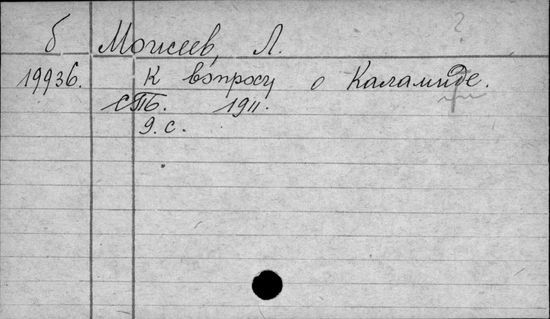 ?
б Моисеев, Л.
19936. К вопросу о Каламиде.
СПб. 1911.
9. с.